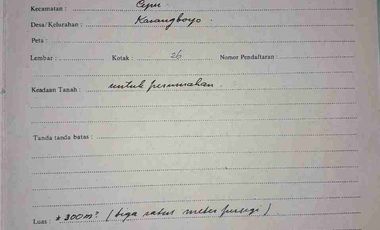 Kecamatan : Cepu.
Desa/Kelurahan : Karangboyo.
Peta :
Lembar : Kotak : 26 Nomor Pendaftaran :
Keadaan Tanah : untuk perumahan.
Tanda tanda batas :
Luas : ± 300 m² (tiga ratus meter persegi)